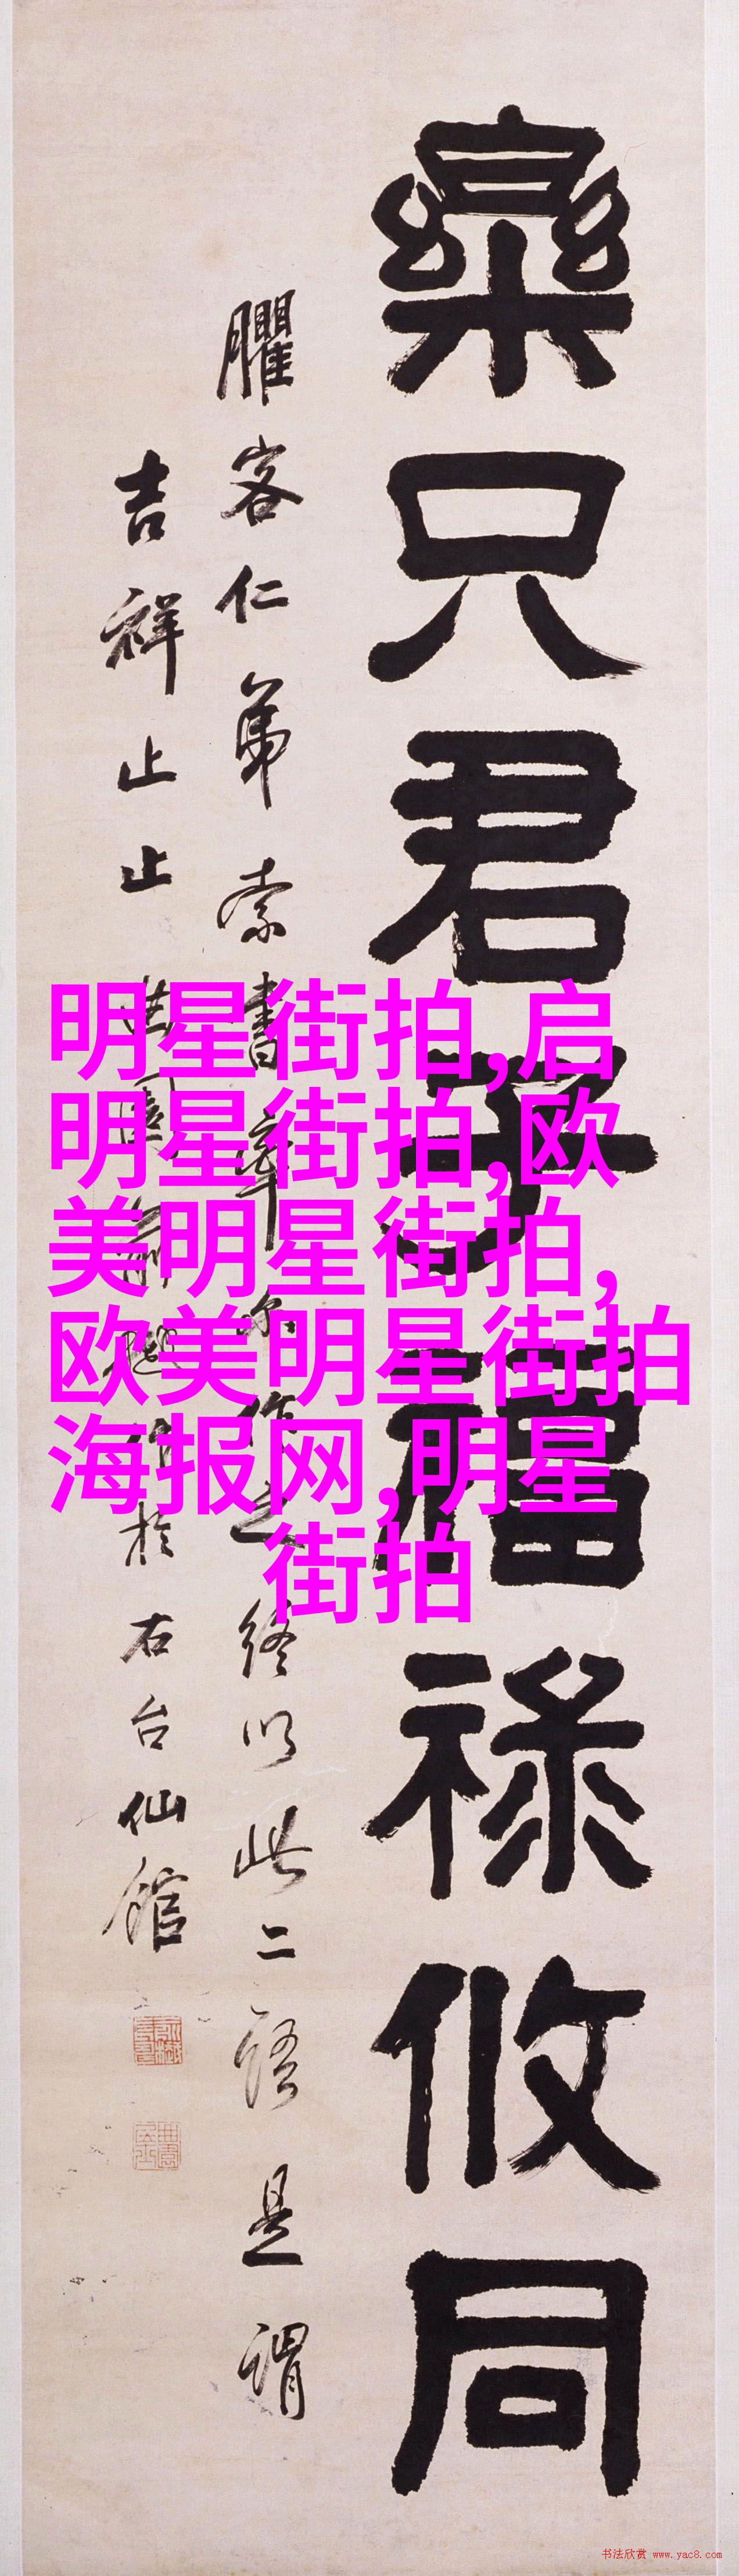 樂只君子福祿攸同
臞客仁弟索書率尔作之終以此二語是謂
吉祥止止
於右台仙館
明星街拍,启
明星街拍,欧
美明星街拍,
欧美明星街拍
海报网,明星
街拍
书法欣赏 www.yac8.com